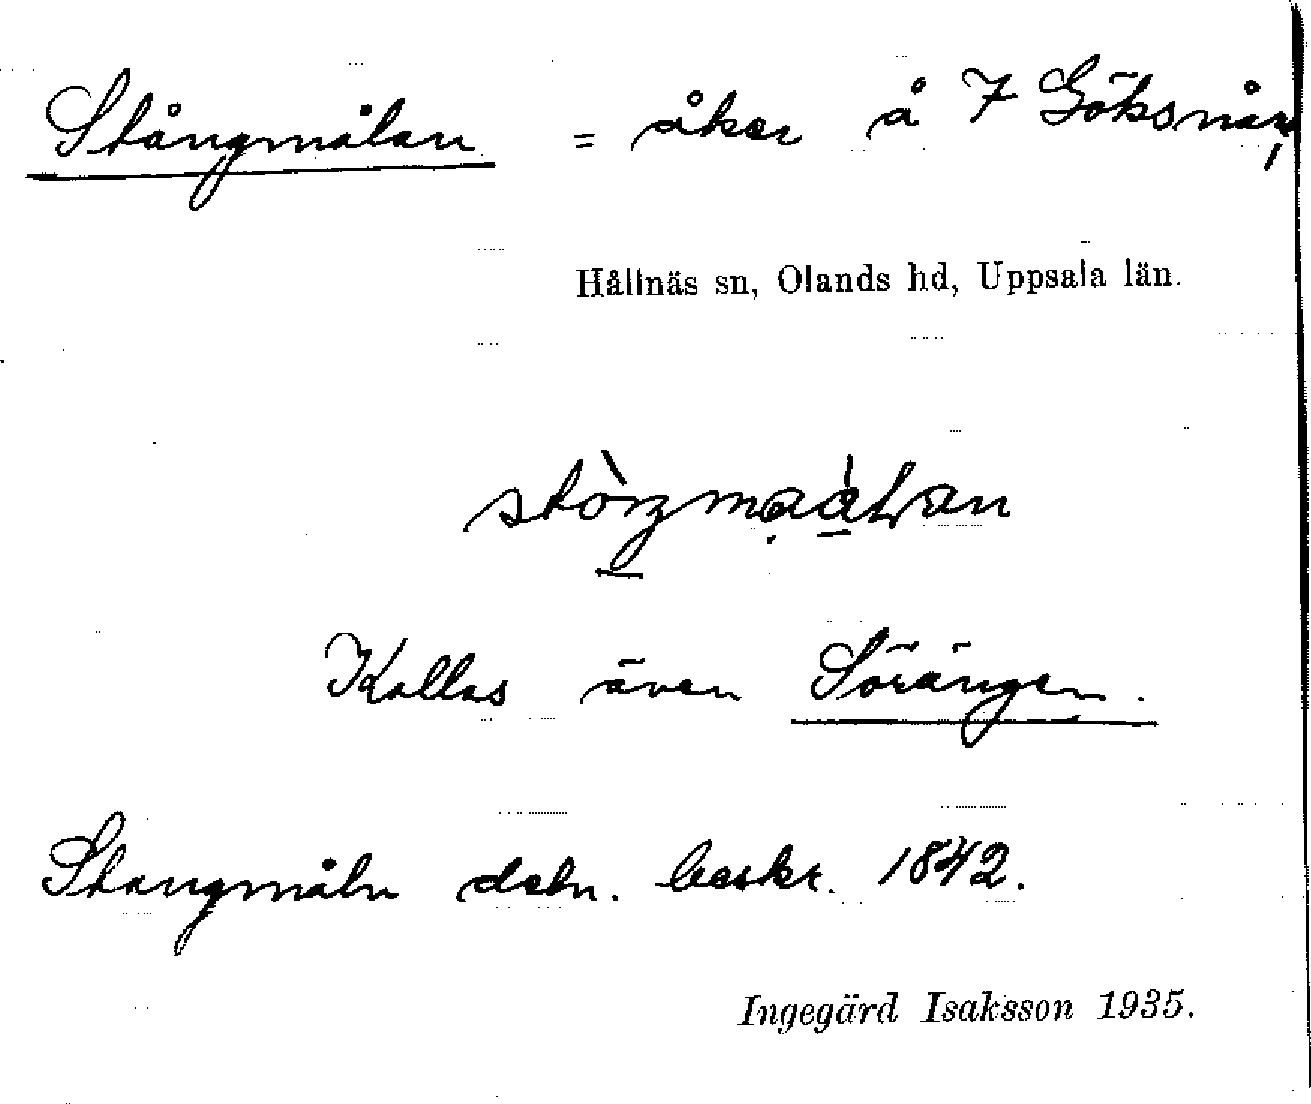 Stångmålan = åker å 7 Göksnåre,
Hållnäs sn, Olands hd, Uppsala län.
Kallas även Sörängen.
Stangmåln detn. beskr. 1842.
Ingegärd Isaksson 1935.